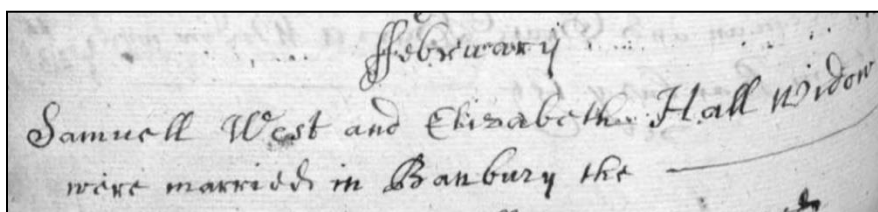 ffebruary
Samuell West and Elizabeth Hall Widow
were married in Banbury the